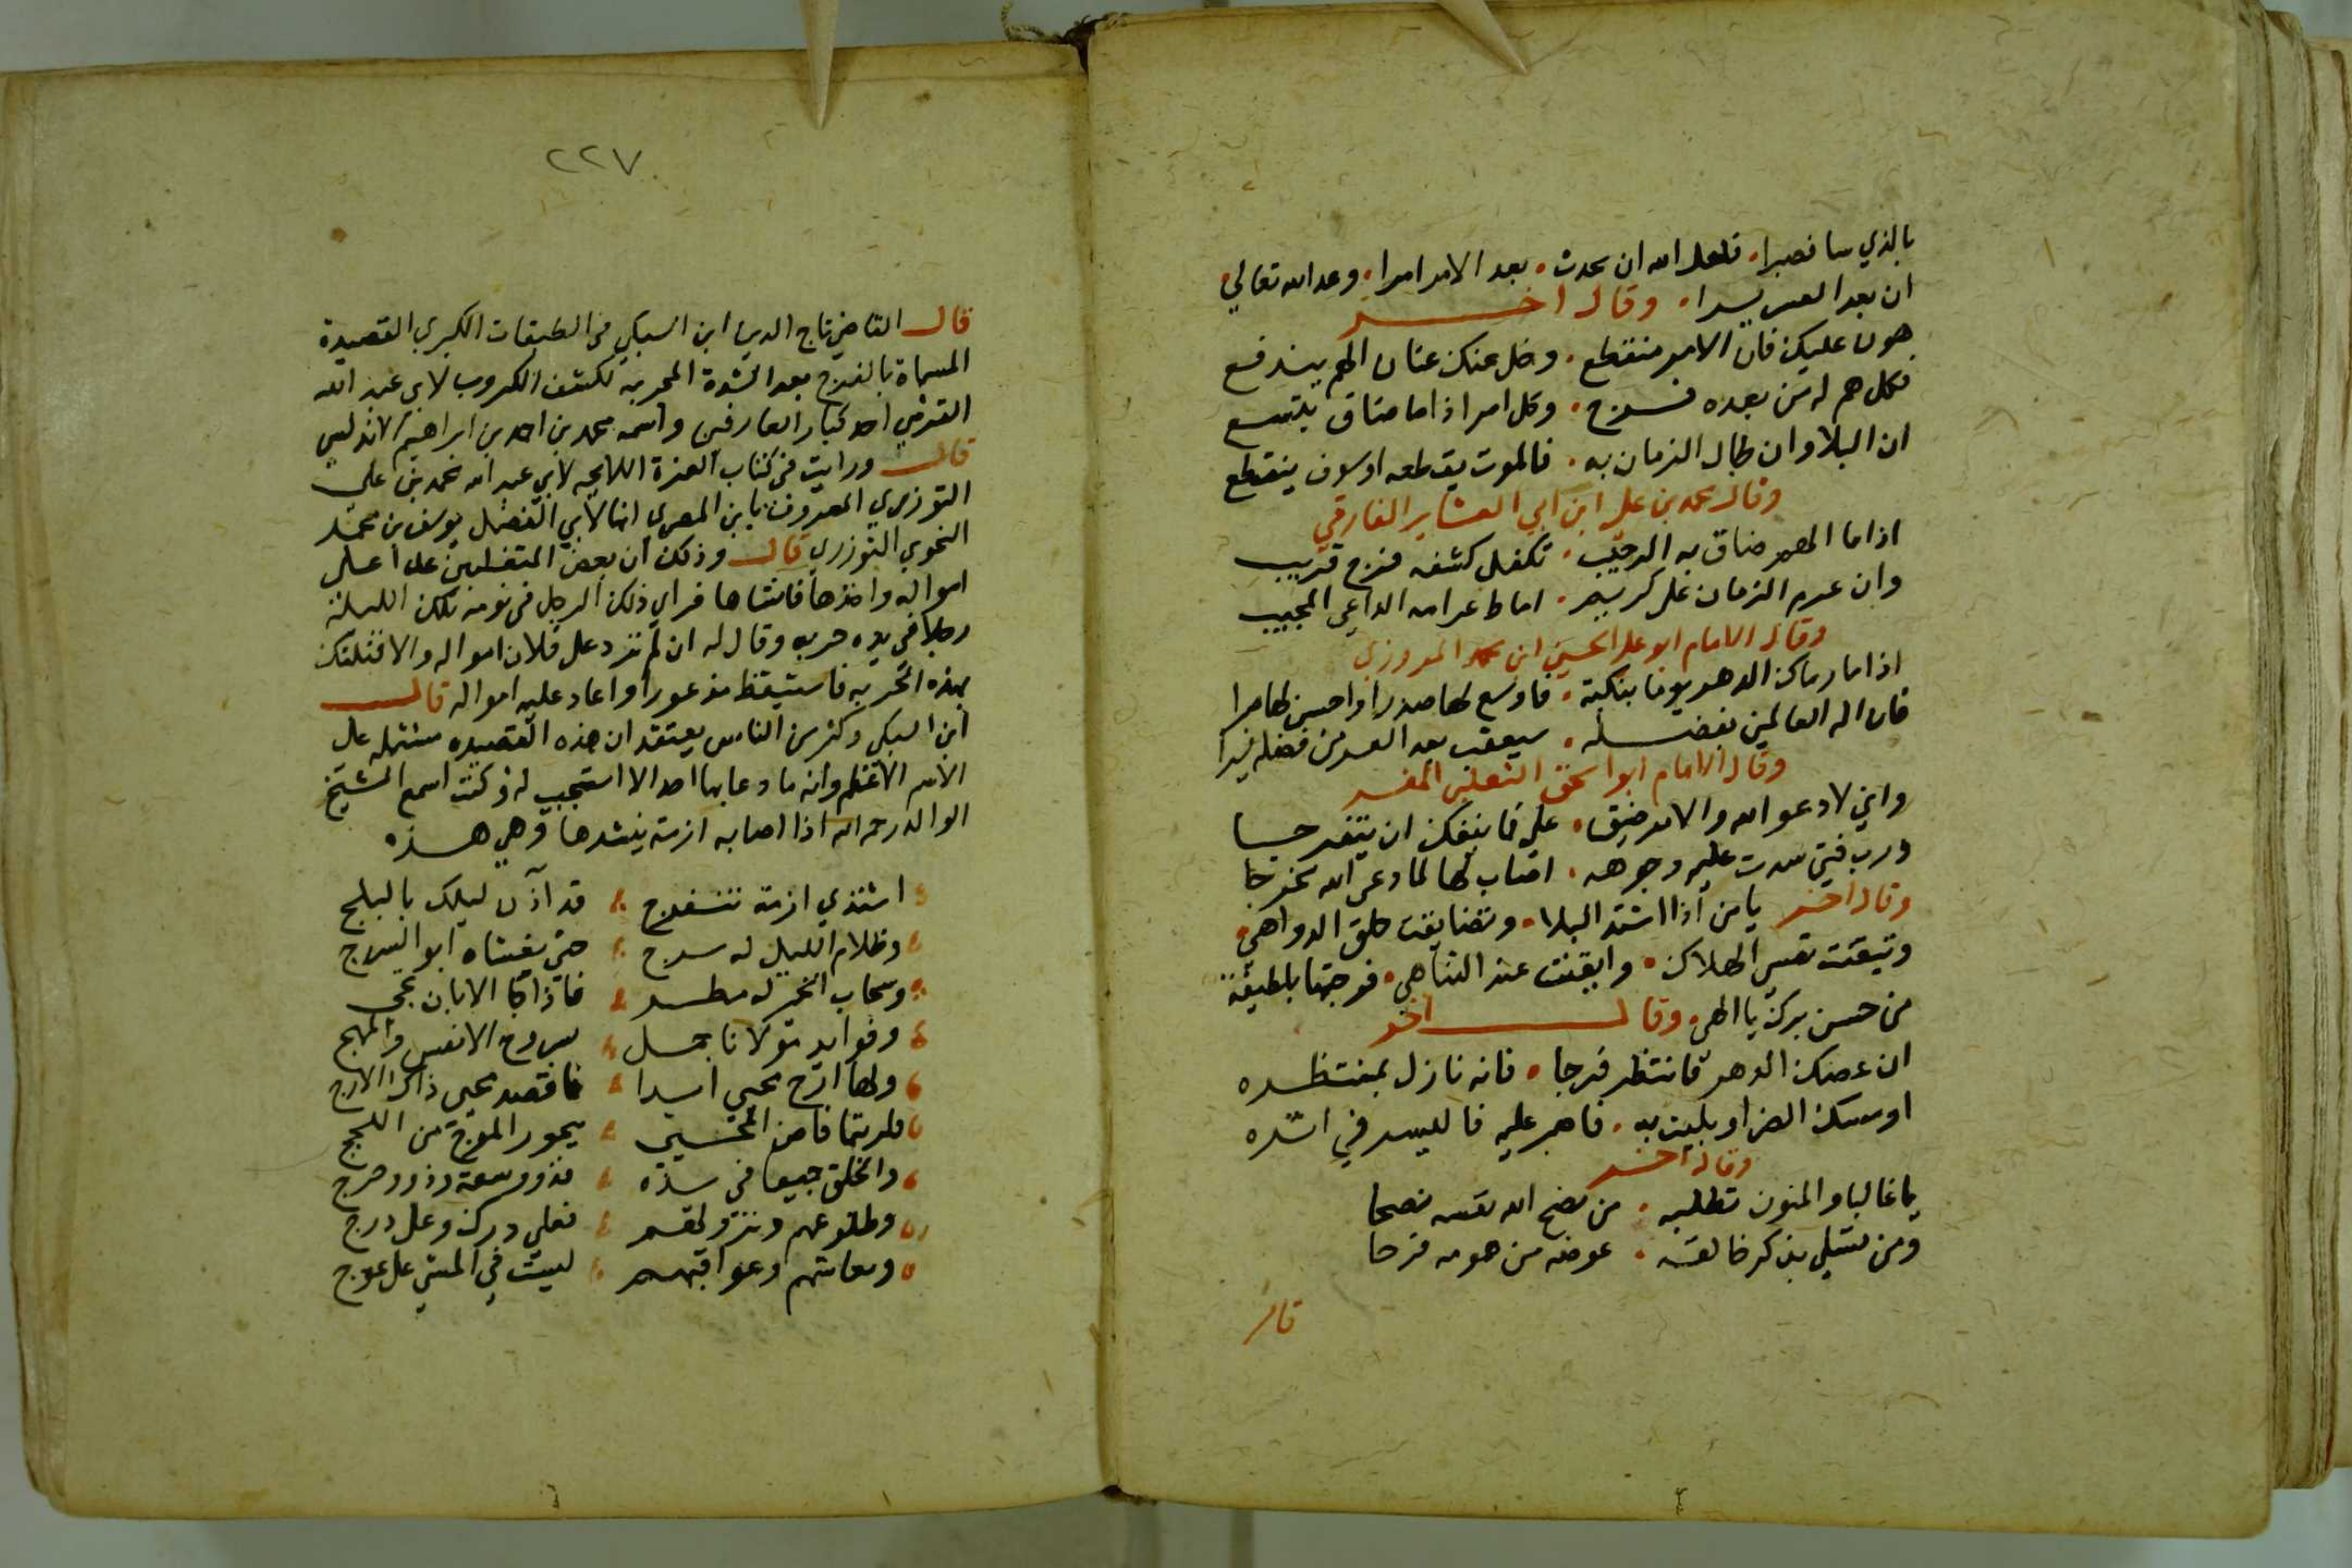 بالذي سا فصبرا. فلعل الله ان يحدث. بعد الامر امرا. وعد الله تعالي.
ان بعد العسر يسرا. وقال اخر
هون عليك فان الامر منقطع. وخل عنك عنان الهم يندفع
فكل هم له من بعده فرج. وكل امر اذا ما ضاق يتسع
ان البلا وان طال الزمان به. فالموت يقطعه او سوف ينقطع
وقال محمد بن علي ابن ابي العشاير الفارقي
اذا ما المصر ضاق به الرحيب. تكفل كشفه فرج قريب
وان عرم الزمان علي كريم. اماط عرامه الداعي المجيب
وقال الامام ابو علي الحسين ابن محمد المروزي
اذا ما رماك الدهر يوما بنكبة. فاوسع لها صدرا واحسن لها امرا
فان اله العالمين بفضله. سيعقب بعد العسر من فضله يسرا
وقال الامام ابو اسحق الثعلبي المفسر
واني لادعو الله والامر ضيق. علي فما ينفك ان يتفرجا
ورب فتي سدت عليه وجوهه. اصاب لها لما دعي الله مخرجا
وقال اخر يا من اذا اشتد البلا. وتضايقت حلق الدواهي.
وتيقنت نفسي الهلاك. وايقنت عند التناهي. فرجتها بلطيفة
من حسن برك يا الهي. وقال اخر
ان عضك الدهر فانتظر فرجا. فانه نازل بمنتظره
او مسك الضر او بليت به. فاصبر عليه فاليسر في اثره
وقال اخر
يا غالبا والمنون تطلبه. من نصح الله نفسه نصحا
ومن تسلي بذكر خالقه. عوضه من همومه فرحا
قال
٢٢٧
قال القاضي تاج الدين ابن السبكي في الطبقات الكبري القصيدة
المسماة بالفرج بعد الشدة المجربه لكشف الكروب لابي عبد الله
القرشي احد كبار العارفين واسمه محمد بن احمد بن ابراهيم الاندلسي
قال ورايت في كتاب الغرة اللايحه لابي عبد الله محمد بن علي
التوزري المعروف بابن المصري انها لابي الفضل يوسف بن محمد
النحوي التوزري قال وذلك ان بعض المتغلبين عدا علي
امواله واخذها فانشاها فراي ذلك الرجل في نومه تلك الليلة
رجلا في يده حربه وقال له ان لم ترد علي فلان امواله والا قتلتك
بهذه الحربه فاستيقظ مذعورا واعاد عليه امواله قال
ابن السبكي وكثير من الناس يعتقد ان هذه القصيده مشتمله علي
الاسم الاعظم وانه ما دعا بها احد الا استجيب له وكنت اسمع الشيخ
الوالد رحمه الله اذا اصابه ازمة ينشدها وهي هذه
اشتدي ازمة تنفرج قد آذن ليلك بالبلج
وظلام الليل له سرج حتي يغشاه ابو السرج
وسحاب الخير له مطر فاذا جا الابان تجي
وفوايد مولانا جمل لسروح الانفس والمهج
ولها ارج محيي ابدا فاقصد محيي ذاك الارج
فلربتما فاض المحيي ببحور الموج من اللجج
والخلق جميعا في يده فذوو سعة وذوو حرج
وطلوعهم ونزولهم فعلي درك وعلي درج
ومعايشهم وعواقبهم ليست في المشي علي عوج